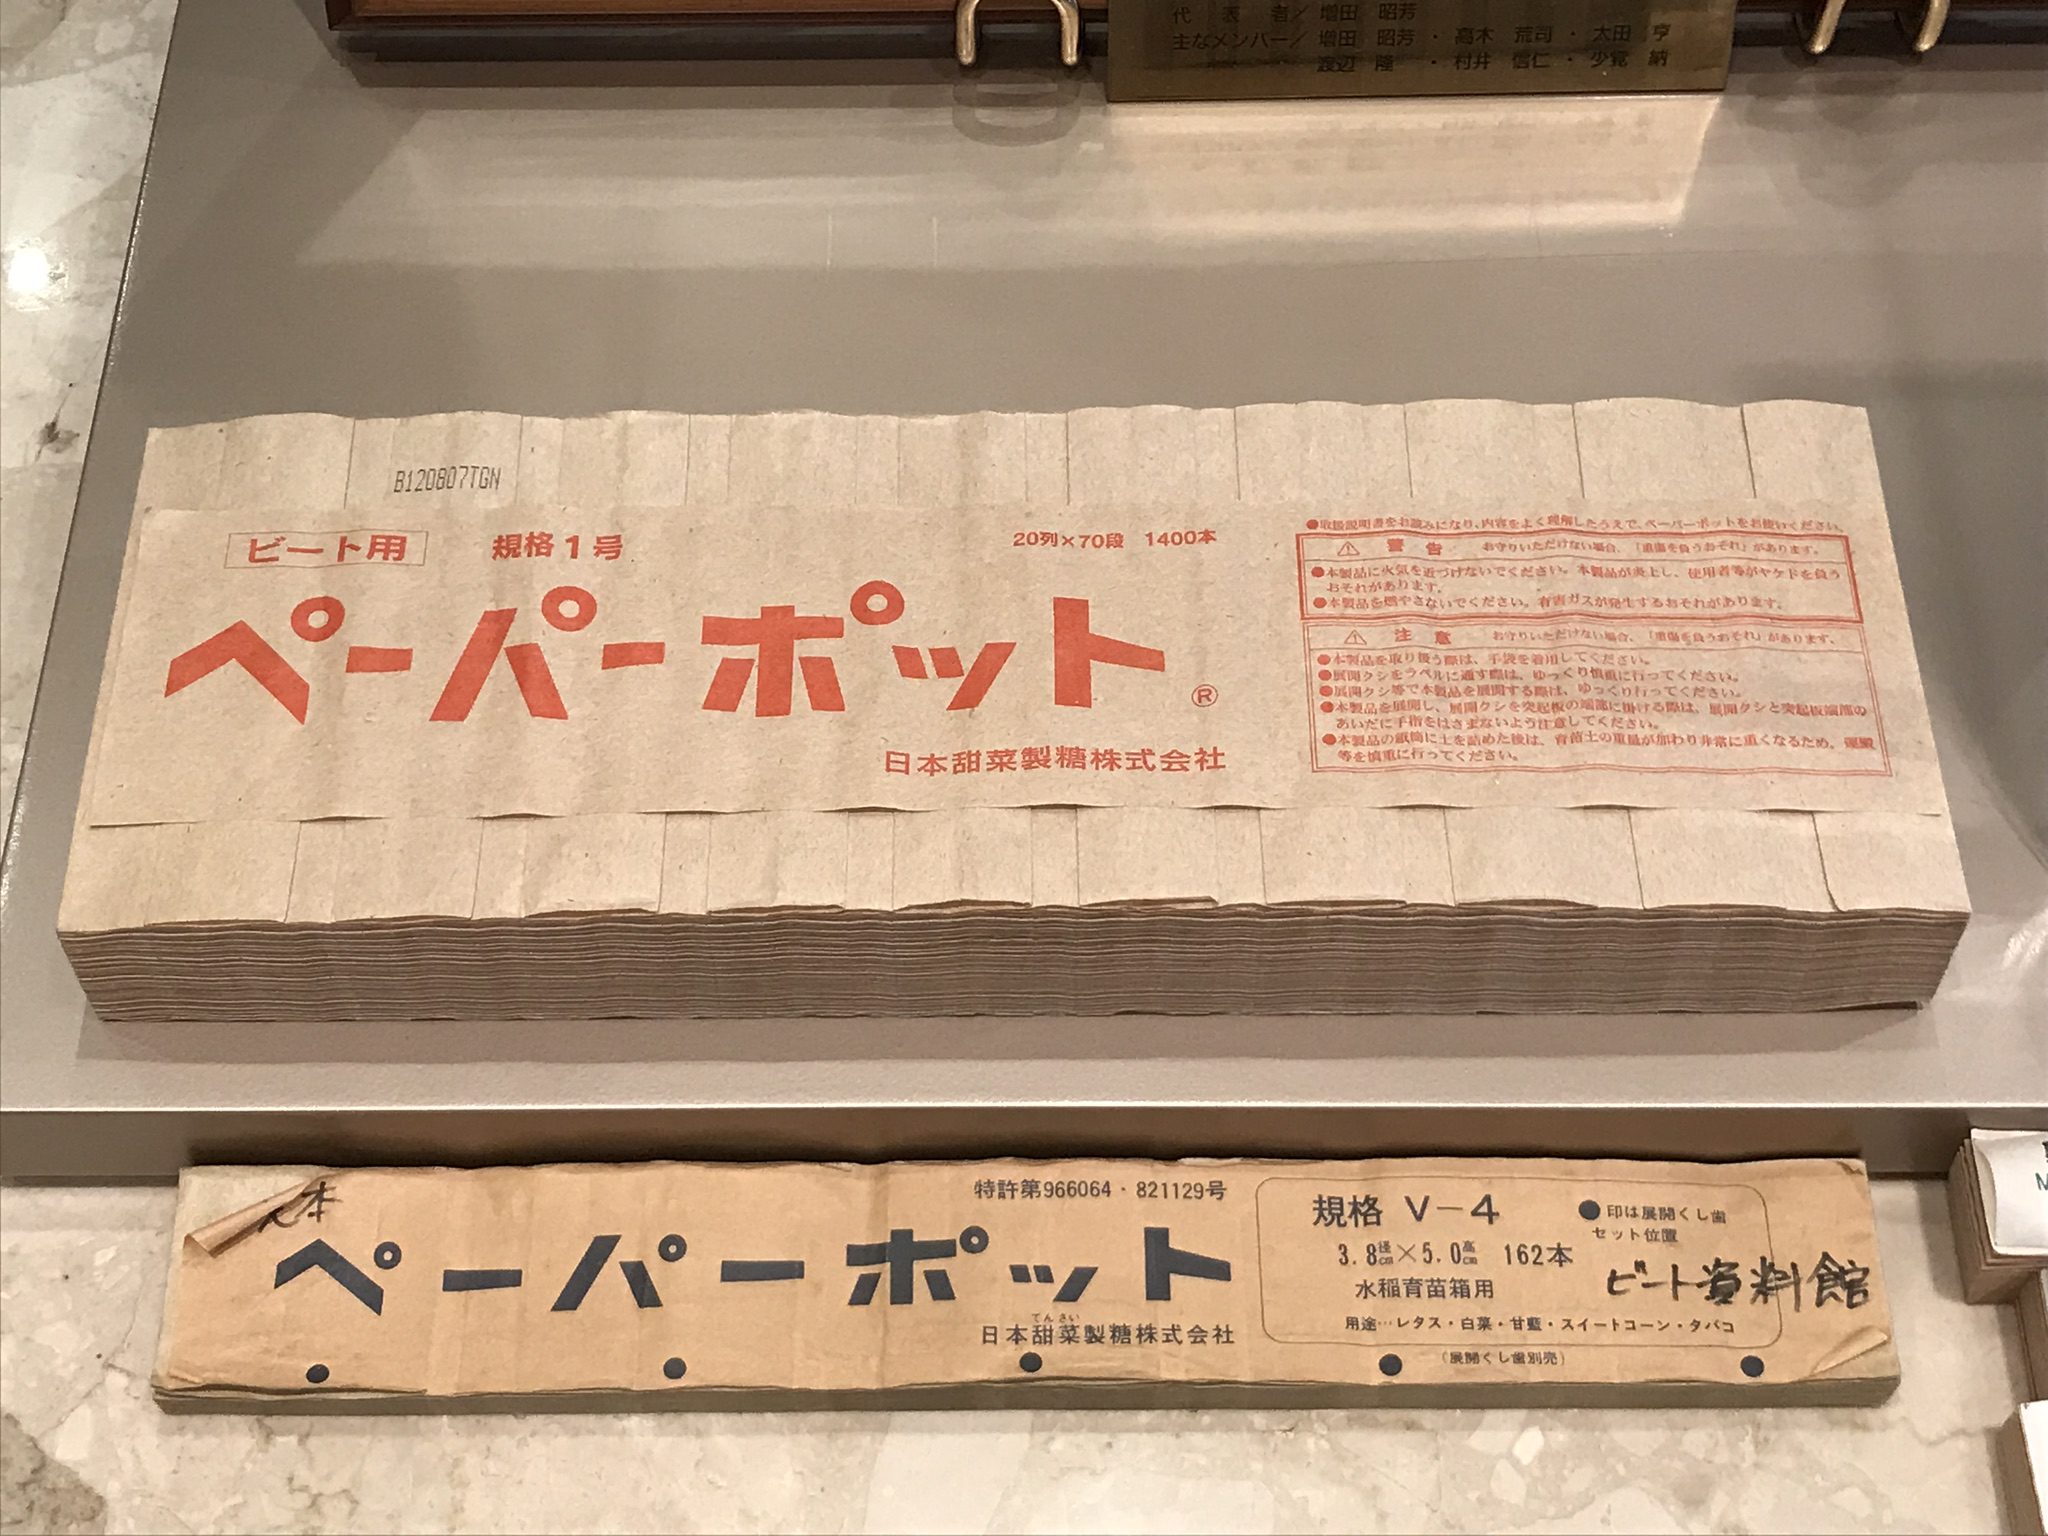 代 表 者／増田 昭芳
主なメンバー／増田 昭芳・高木 荒司・太田 亨
渡辺 隆 ・村井 信仁・少覚 納
B120807TGN
ビート用 規格1号 20列×70段 1400本
ペーパーポット®
日本甜菜製糖株式会社
●取扱説明書をお読みになり、内容をよく理解したうえで、ペーパーポットをお使いください。
⚠ 警 告 お守りいただけない場合、「重傷を負うおそれ」があります。
●本製品に火気を近づけないでください。本製品が炎上し、使用者等がヤケドを負う
おそれがあります。
●本製品を燃やさないでください。有害ガスが発生するおそれがあります。
⚠ 注 意 お守りいただけない場合、「重傷を負うおそれ」があります。
●本製品を取り扱う際は、手袋を着用してください。
●展開クシをラベルに通す際は、ゆっくり慎重に行ってください。
●展開クシ等で本製品を展開する際は、ゆっくり行ってください。
●本製品を展開し、展開クシを突起板の端部に掛ける際は、展開クシと突起板端部の
あいだに手指をはさまないよう注意してください。
●本製品の紙筒に土を詰めた後は、育苗土の重量が加わり非常に重くなるため、運搬
等を慎重に行ってください。
本
特許第966064・821129号
ペーパーポット
てんさい
日本甜菜製糖株式会社
規格 V－4
3.8径cm×5.0高cm 162本
水稲育苗箱用
●印は展開くし歯
セット位置
ビート資料館
用途…レタス・白菜・甘藍・スイートコーン・タバコ
(展開くし歯別売)
M